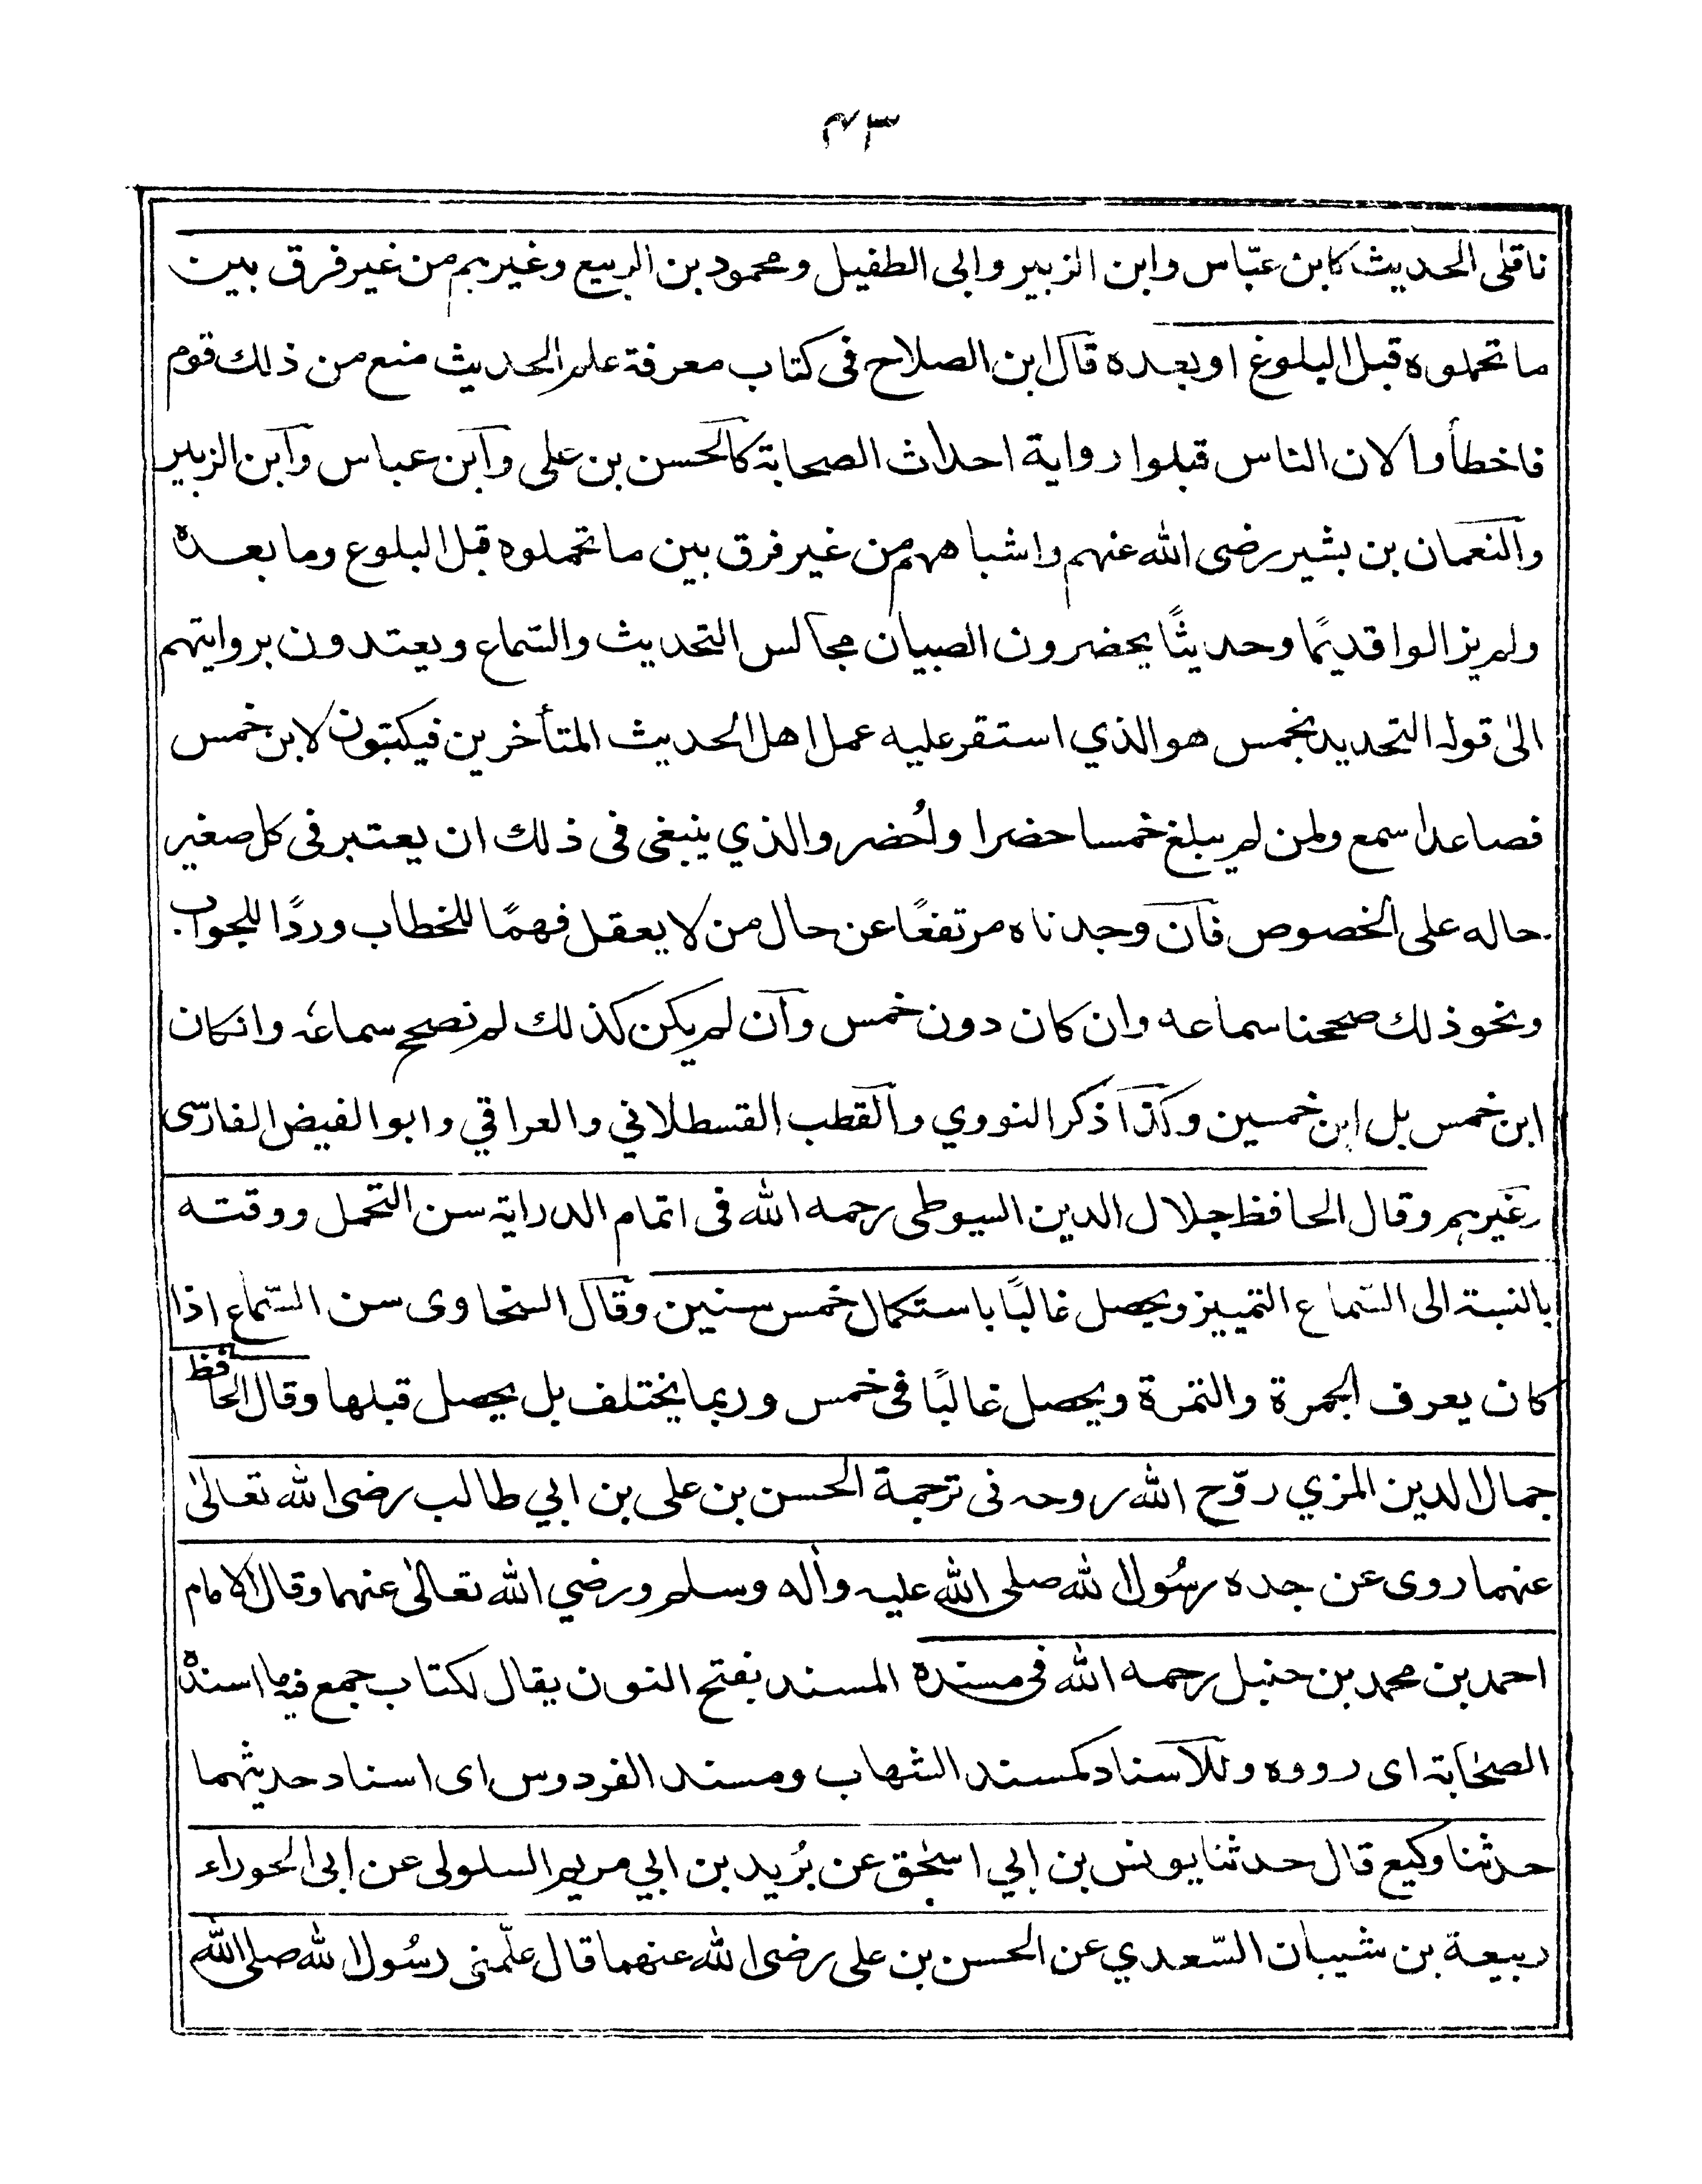 ۴۳
ناقلی الحدیث کابن عبّاس وابن الزبیر وابی الطفیل ومحمود بن الربیع وغیرہم من غیر فرق بین
ما تحملوه قبل البلوغ او بعده قال ابن الصلاح فی کتاب معرفة علم الحدیث منع من ذلك قوم
فاخطأوا لان الناس قبلوا روایة احداث الصحابة کالحسن بن علی وابن عباس وابن الزبیر
والنعمان بن بشیر رضی الله عنهم واشباههم من غیر فرق بین ما تحملوه قبل البلوع وما بعده
ولم یزالوا قدیمًا وحدیثًا یحضرون الصبیان مجالس التحدیث والسّماع ویعتدون بروایتهم
الیٰ قوله التحدید بخمس هو الذي استقر علیه عمل اهل الحدیث المتأخرین فیکتبون لابن خمس
فصاعدا سمع ولمن لم یبلغ خمسا حضرا ولُحضر والذي ینبغی فی ذلك ان یعتبر فی کل صغیر
حاله علی الخصوص فان وجدناه مرتفعًا عن حال من لا یعقل فهمًا للخطاب وردًا للجواب
ونحو ذلك صححنا سماعه وان کان دون خمس وان لم یکن کذلك لم نصحح سماعه وانکان
ابن خمس بل ابن خمسین وکذا ذکر النووي والقطب القسطلاني والعراقي وابو الفیض الفارسی
وغیرہم وقال الحافظ جلال الدین السیوطی رحمه الله فی اتمام الدرایة سن التحمل ووقته
بالنسبة الی السّماع التمییز ویحصل غالبًا باستکمال خمس سنین وقال السخاوی سن السّماع اذا
کان یعرف الجمرة والتمرة ویحصل غالبًا فی خمس وربما یختلف بل یحصل قبلها وقال الحافظ
جمال الدین المزي روّح الله روحه فی ترجمة الحسن بن علی بن ابي طالب رضی الله تعالیٰ
عنهما روی عن جده رسُول الله صلی الله علیه واٰله وسلم ورضي الله تعالیٰ عنهما وقال الامام
احمد بن محمد بن حنبل رحمه الله فی مسنده المسند بفتح النون یقال لکتاب جمع فیه ما اسنده
الصحٰابة ای رووه وللاسناد کمسند الشهاب ومسند الفردوس ای اسناد حدیثهما
حدثنا وکیع قال حدثنا یونس بن ابي اسحٰق عن بُرید بن ابي مریم السلولی عن ابی الحوراء
ربیعة بن شیبان السّعدي عن الحسن بن علی رضی الله عنهما قال علّمنی رسُول الله صلی الله